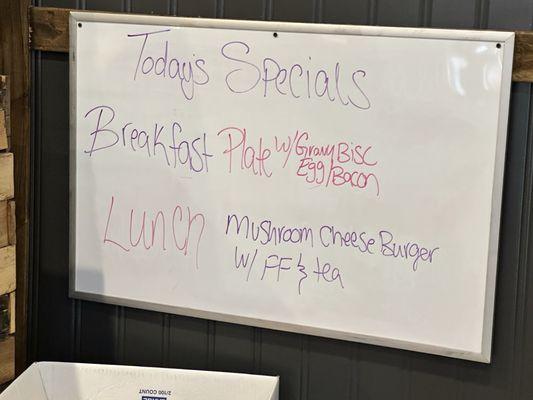 Today's Specials
Breakfast Plate w/ Gravy Bisc
Egg/Bacon
Lunch Mushroom Cheese Burger
w/ FF & tea
2/100 COUNT